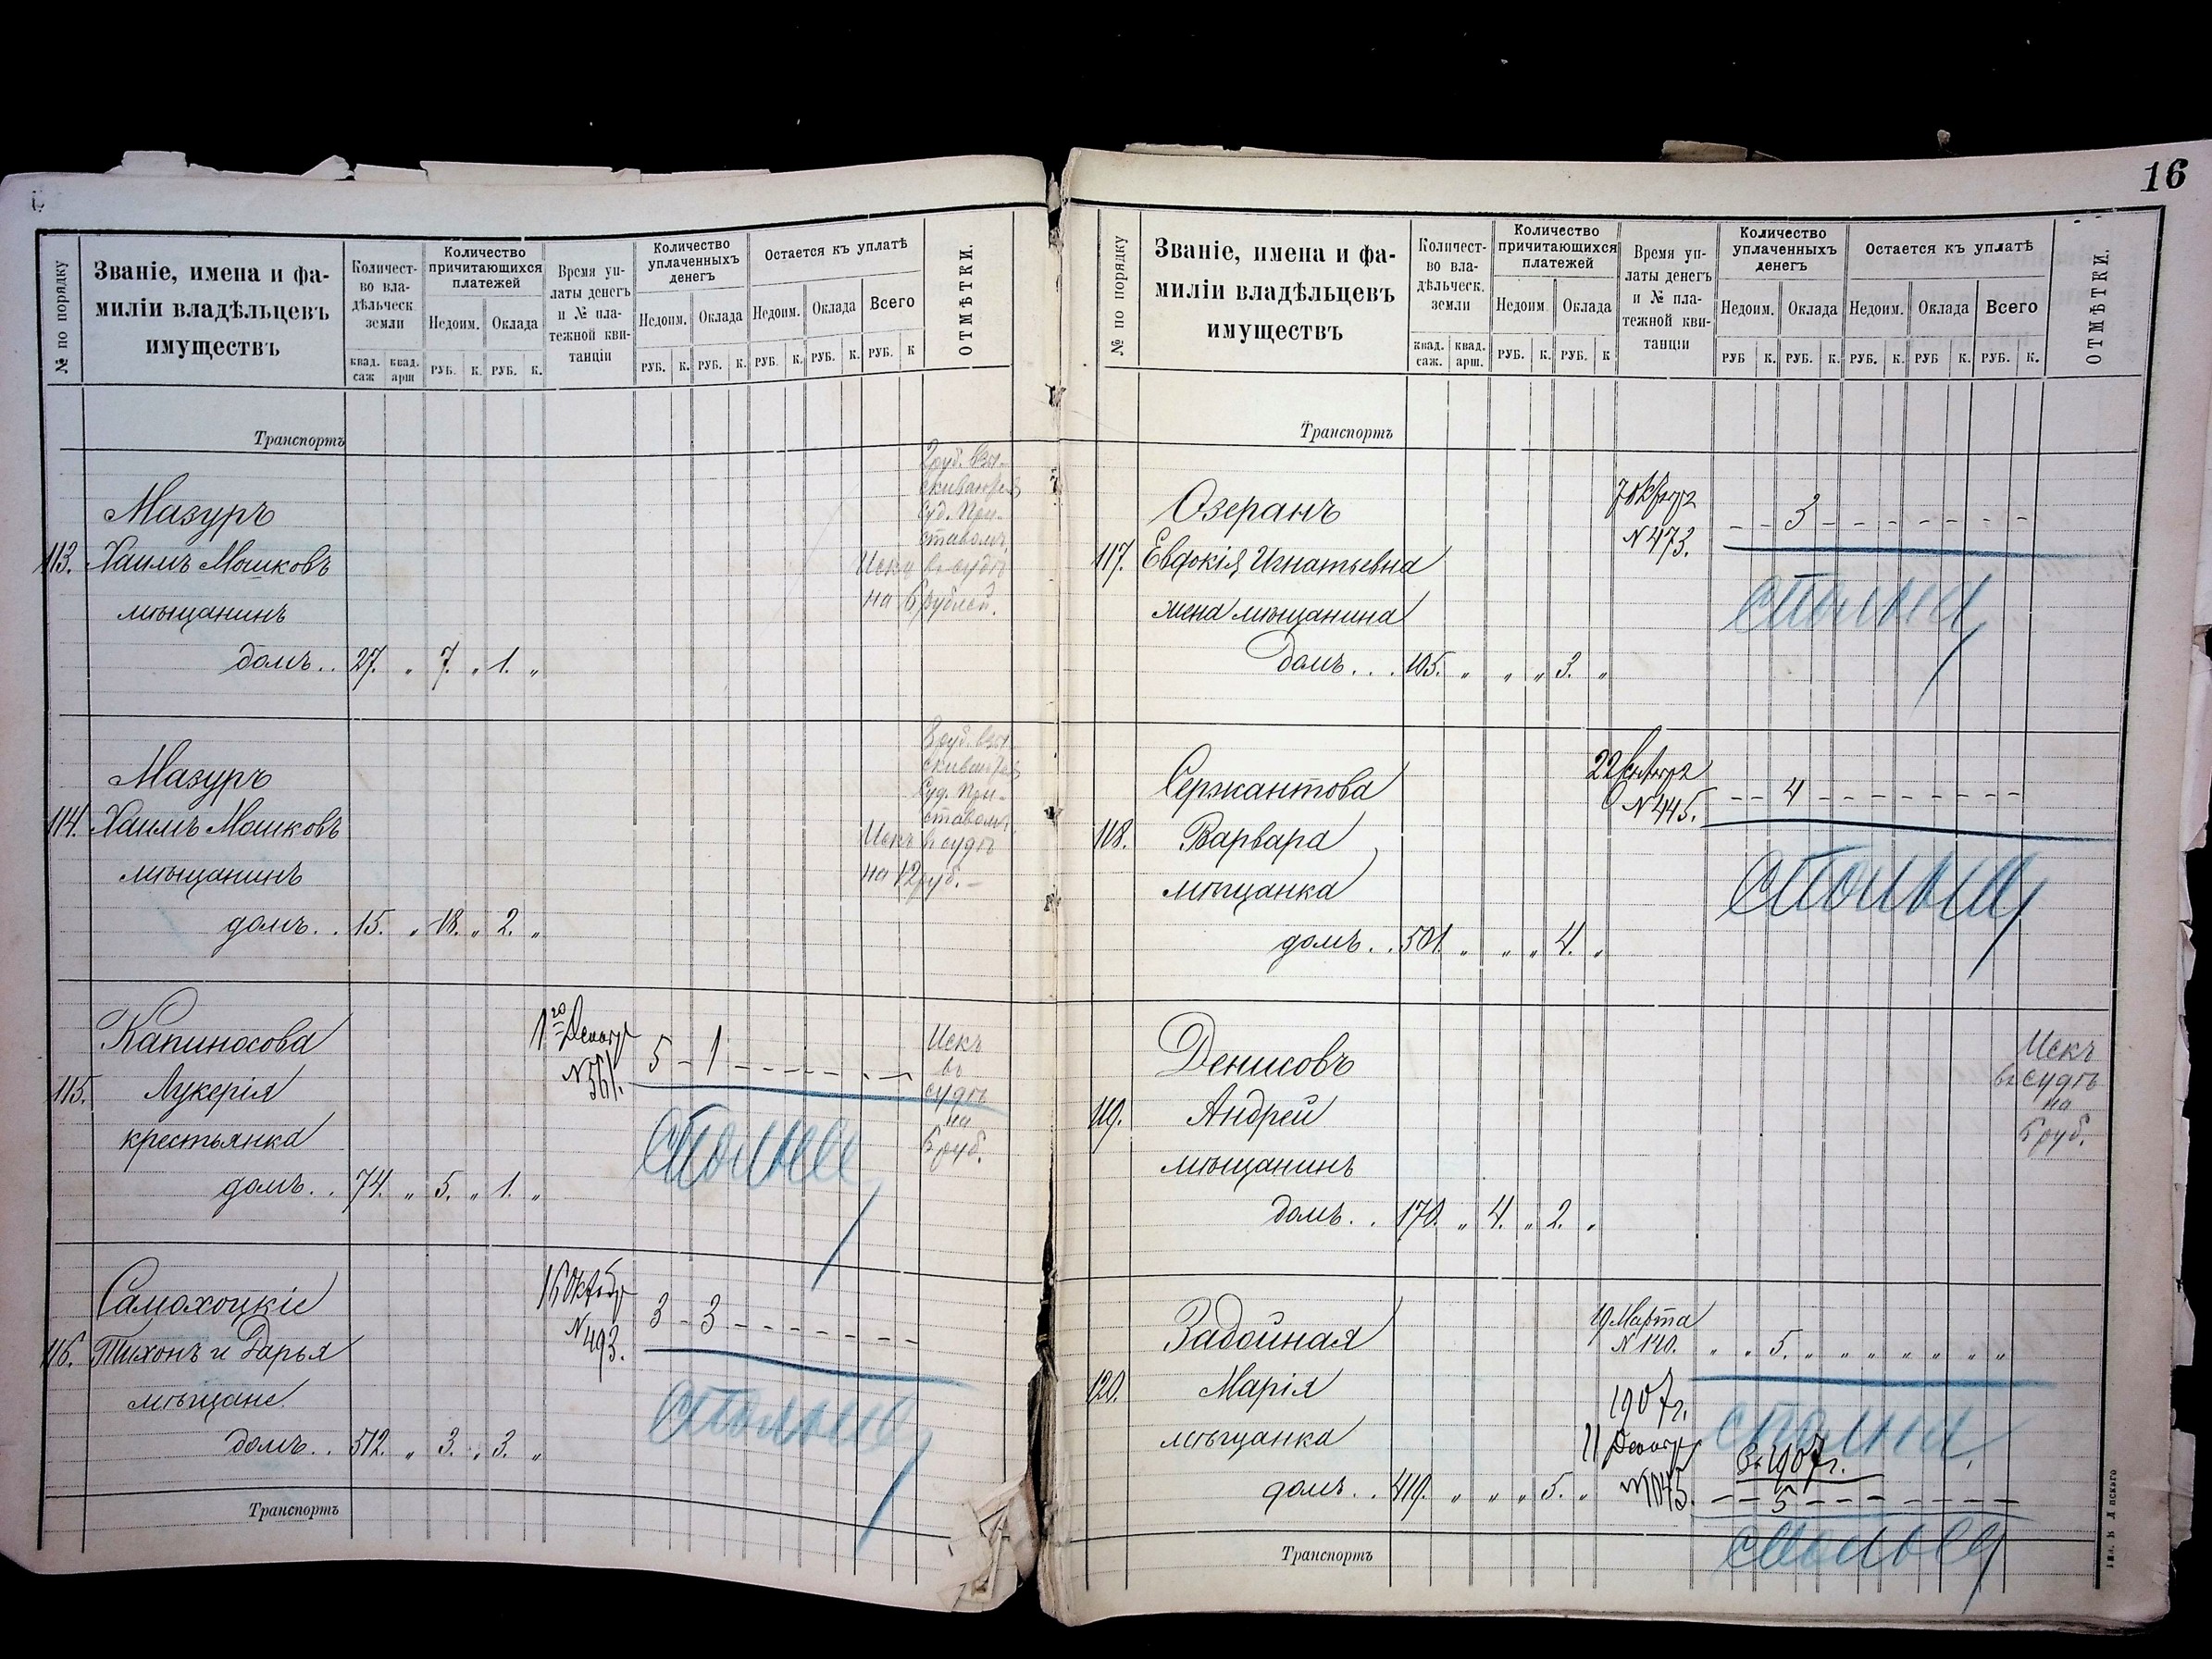 № по порядку
Званіе, имена и фа-
миліи владѣльцевъ
имуществъ
Количест-
во вла-
дѣльческ.
земли
квад. саж
квад. арш
Количество
причитающихся
платежей
Недоим.
Оклада
РУБ. К. РУБ. К.
Время уп-
латы денегъ
и № пла-
тежной кви-
танціи
Количество
уплаченныхъ
денегъ
Недоим.
Оклада
РУБ. К. РУБ. К.
Остается къ уплатѣ
Недоим.
Оклада
Всего
РУБ. К. РУБ. К. РУБ. К
ОТМѢТКИ.
Транспортъ
Мазуръ
113. Хаимъ Мошковъ
мѣщанинъ
домъ.. 27. „ 7. „ 1. „
2 руб. взы-
скиваются
Суд. При-
ставомъ.
Искъ въ судѣ
на 6 рублей.
Мазуръ
114. Хаимъ Мошковъ
мѣщанинъ
домъ.. 15. „ 18. „ 2. „
8 руб. взы-
скиваются
Суд. При-
ставомъ.
Искъ въ судѣ
на 12 руб. –
Капиносова
115. Лукерія
крестьянка
домъ.. 74. „ 5. „ 1. „
1го Декабр
N 561.
5 – 1 – – – – – –
Искъ
въ
судѣ
на
5 руб.
сполна
Самохоцкіе
116. Тихонъ и Дарья
мѣщане
домъ.. 512. „ 3. „ 3. „
16 Октябр
N 493.
3 – 3 – – – – – – –
сполна
Транспортъ
16
№ по порядку
Званіе, имена и фа-
миліи владѣльцевъ
имуществъ
Количест-
во вла-
дѣльческ.
земли
квад. саж.
квад. арш.
Количество
причитающихся
платежей
Недоим
Оклада
РУБ. К. РУБ. К
Время уп-
латы денегъ
и № пла-
тежной кви-
танціи
Количество
уплаченныхъ
денегъ
Недоим.
Оклада
РУБ К. РУБ. К.
Остается къ уплатѣ
Недоим.
Оклада
Всего
РУБ. К. РУБ К. РУБ. К.
ОТМѢТКИ.
Транспортъ
Озеранъ
117. Евдокія Игнатьевна
жена мѣщанина
Домъ... 105. „ „ „ 3. „
7 Октября
N 473.
– – 3 – – – – – – –
сполна
Сержантова
118. Варвара
мѣщанка
домъ.. 501. „ „ „ 4. „
22 Сентября
N 445.
– – 4 – – – – – – –
сполна
Денисовъ
119. Андрей
мѣщанинъ
домъ.. 170. „ 4. „ 2. „
Искъ
въ судѣ
на
5 руб.
Задойная
120. Марія
мѣщанка
домъ.. 410. „ „ „ 5. „
19 Марта
N 140. „ „ 5. „ „ „ „ „ „ „
сполна
1907 г.
11 Декабр
N 1045.
За 1907 г.
– – 5 – – – – – – –
сполна
Транспортъ